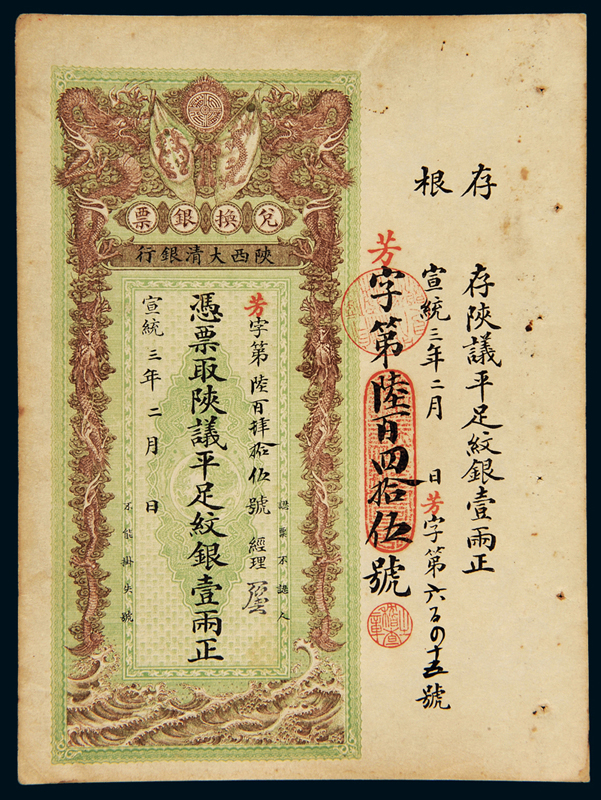 存根
存陝議平足紋銀壹兩正
宣統三年二月 日芳字第六百四十五號
芳字第陸百四拾伍號
兌換銀票
陝西大清銀行
芳字第陸百肆拾伍號 經理
認票不認人
憑票取陝議平足紋銀壹兩正
宣統三年二月 日
不能掛失號